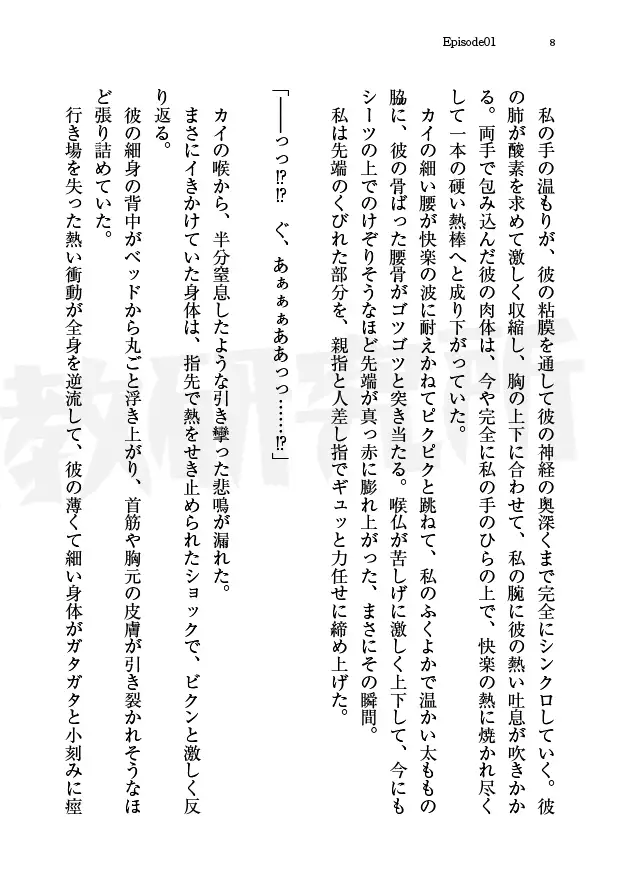 Episode01
8
私の手の温もりが、彼の粘膜を通して彼の神経の奥深くまで完全にシンクロしていく。彼
の肺が酸素を求めて激しく収縮し、胸の上下に合わせて、私の腕に彼の熱い吐息が吹きかか
る。両手で包み込んだ彼の肉体は、今や完全に私の手のひらの上で、快楽の熱に焼かれ尽く
して一本の硬い熱棒へと成り下がっていた。
カイの細い腰が快楽の波に耐えかねてピクピクと跳ねて、私のふくよかで温かい太ももの
脇に、彼の骨ばった腰骨がゴツゴツと突き当たる。喉仏が苦しげに激しく上下して、今にも
シーツの上でのけぞりそうなほど先端が真っ赤に膨れ上がった、まさにその瞬間。
私は先端のくびれた部分を、親指と人差し指でギュッと力任せに締め上げた。
「――っっ!?!? ぐ、あぁぁぁああっっ……!?」
カイの喉から、半分窒息したような引き攣った悲鳴が漏れた。
まさにイきかけていた身体は、指先で熱をせき止められたショックで、ビクンと激しく反
り返る。
彼の細身の背中がベッドから丸ごと浮き上がり、首筋や胸元の皮膚が引き裂かれそうなほ
ど張り詰めていた。
行き場を失った熱い衝動が全身を逆流して、彼の薄くて細い身体がガタガタと小刻みに痙
教研究所